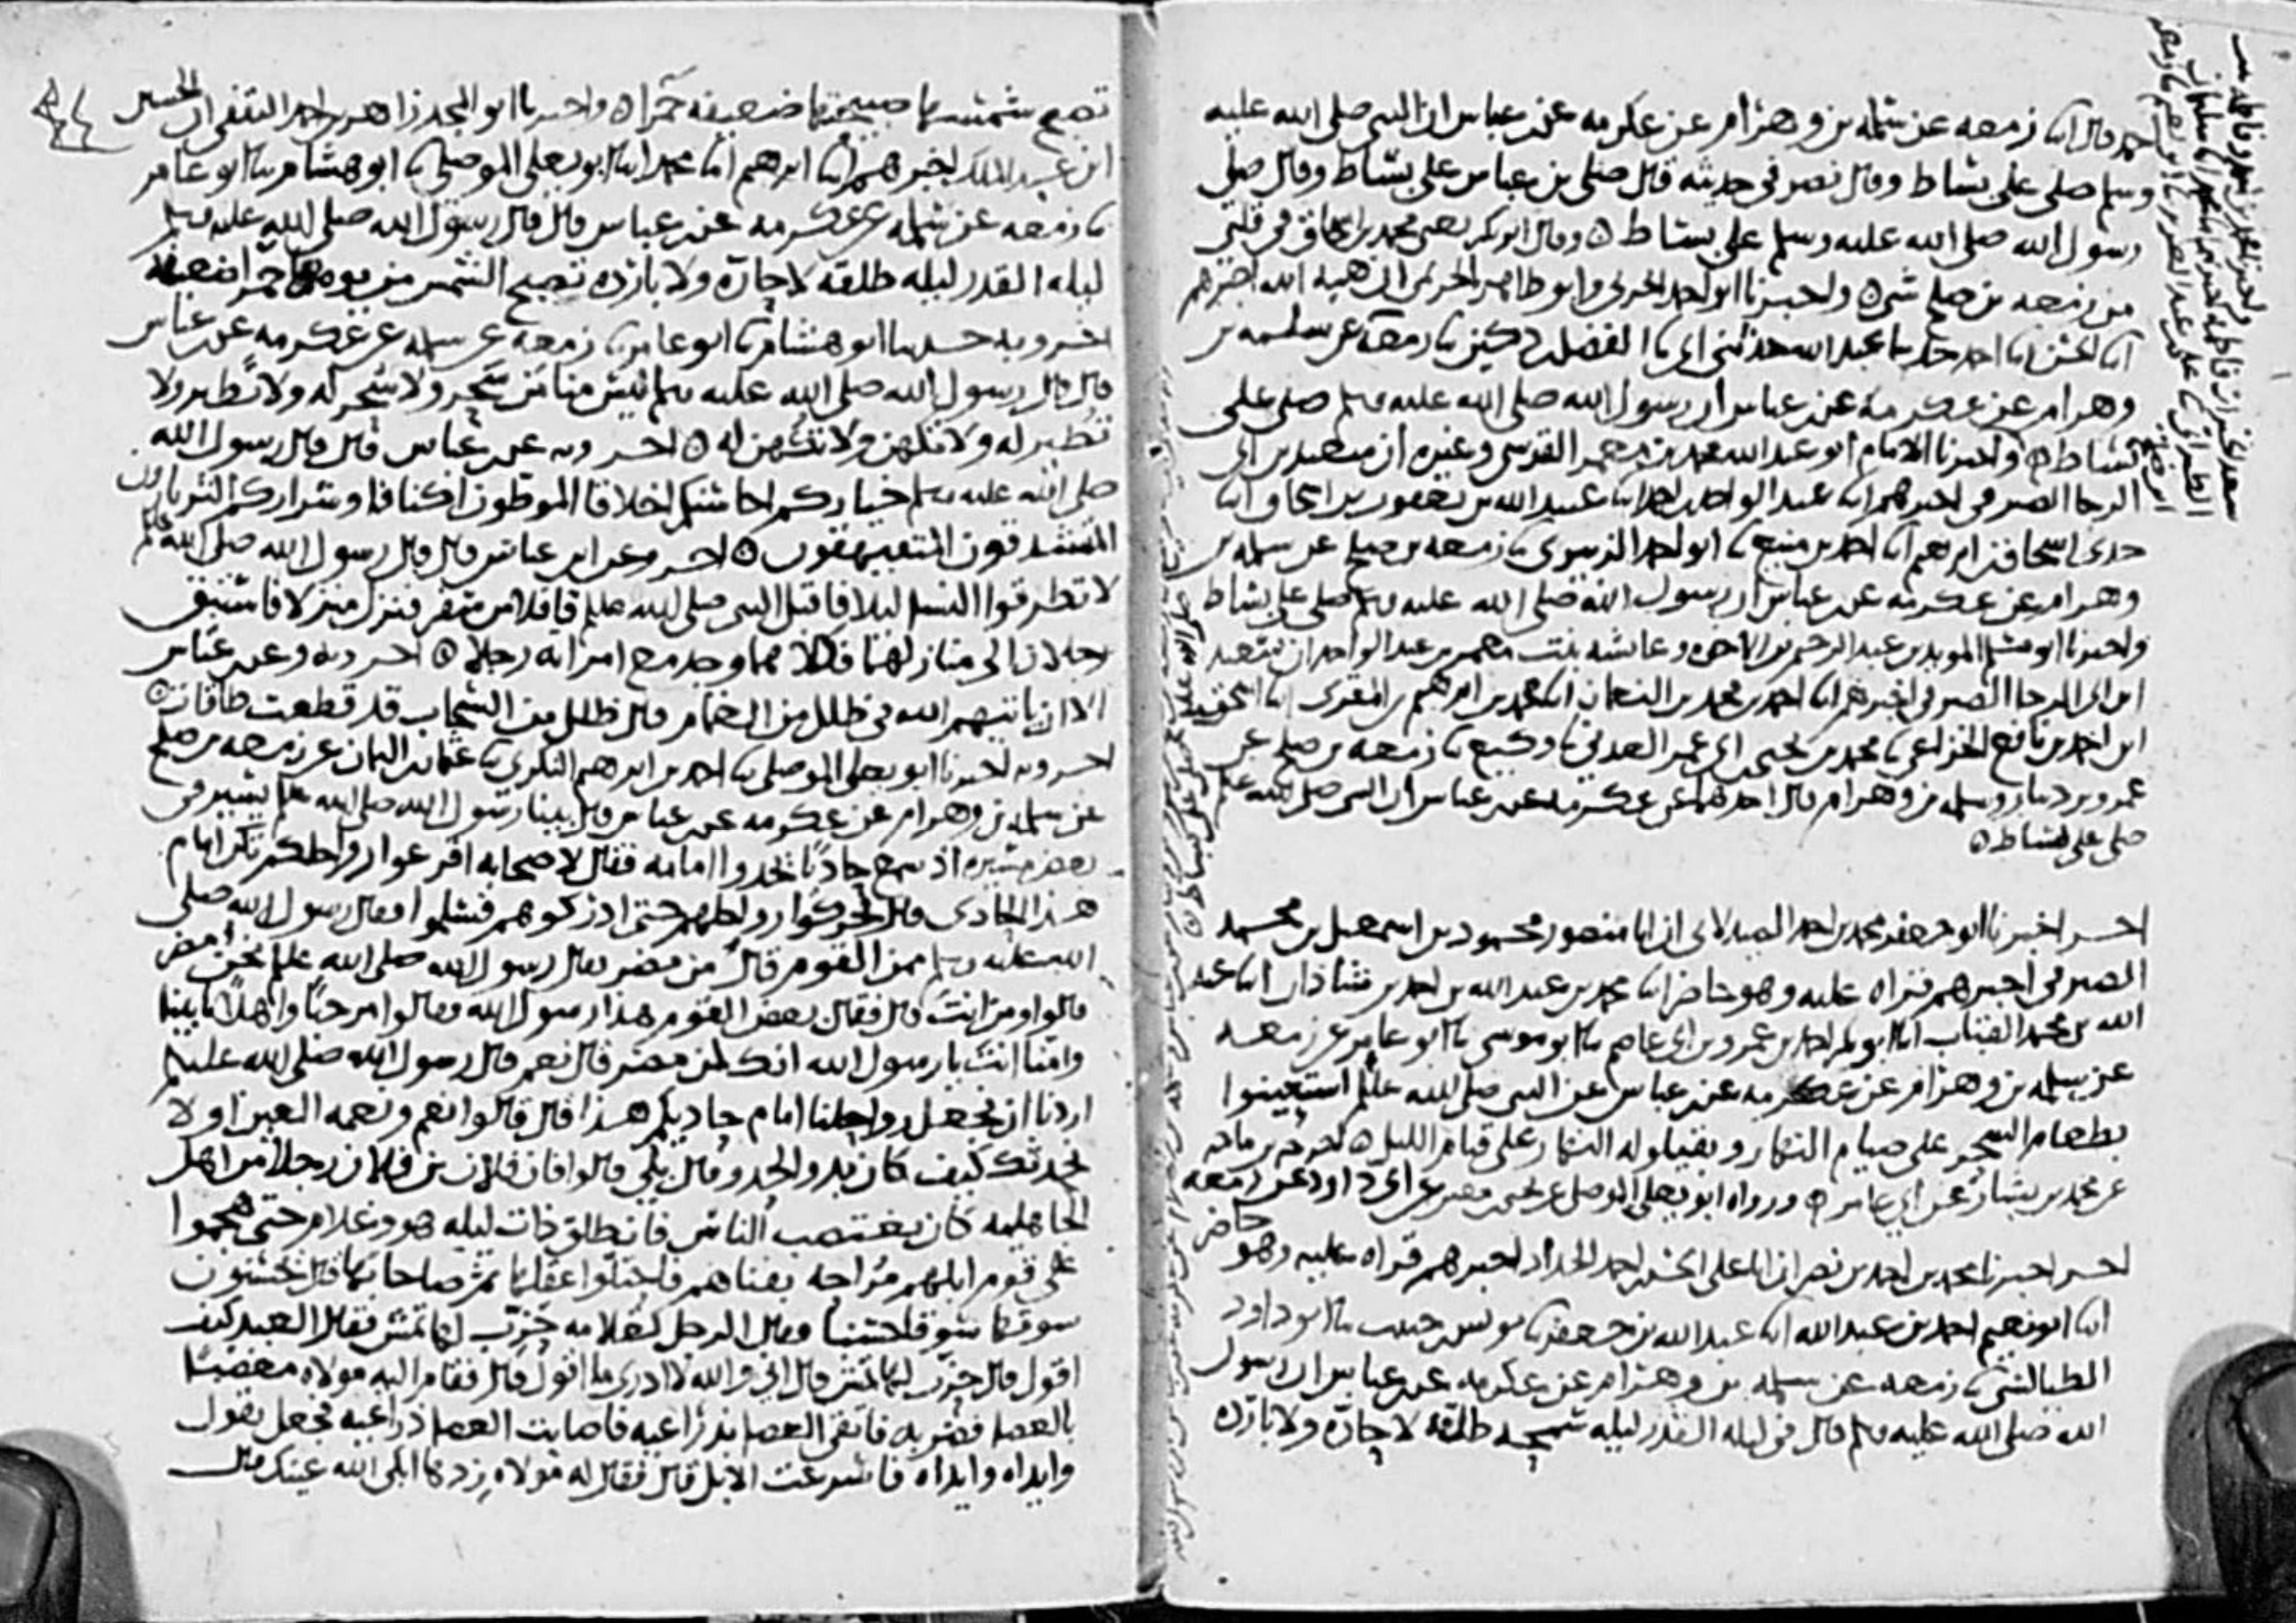 احمد قال انا زمعه عن سلمه بن وهرام عن عكرمه عن ابن عباس ان النبي صلى الله عليه
وسلم صلى على بساط وقال نصر في حديثه قال صلى بن عباس على بساط وقال صلى
رسول الله صلى الله عليه وسلم على بساط ٥ وقال ابو بكر يعني محمد بن اسحاق في قلبي
من زمعه بن صلح شي ٥ واخبرنا ابو احمد الحربي وابو طاهر الحريمي ان هبه الله اخبرهم
انا الحسن انا احمد نا عبد الله حدثني ابي نا الفضل بن دكين نا زمعه عن سلمه بن
وهرام عن عكرمه عن ابن عباس ان رسول الله صلى الله عليه وسلم صلى على
بساط ٥ واخبرنا الامام ابو عبد الله محمد بن معمر القرشي وغيره ان سعيد بن ابي
الرجا الصيرفي اخبرهم انا عبد الواحد بن احمد انا عبيد الله بن يعقوب بن اسحاق انا
جدي اسحاق بن ابرهيم انا احمد بن منيع نا ابو احمد الزبيري نا زمعه بن صلح عن سلمه بن
وهرام عن عكرمه عن ابن عباس ان رسول الله صلى الله عليه وسلم صلى على بساط
واخبرنا ابو مسلم المويد بن عبد الرحيم بن الاخوه وعايشه بنت معمر بن عبد الواحد ان سعيد
ابن ابي الرجا الصيرفي اخبرهم انا احمد بن محمد بن النعمان انا محمد بن ابرهيم بن المقرى انا اسحق
ابن احمد بن نافع الخزاعي نا محمد بن يحيى بن ابي عمر العدني نا وكيع نا زمعه بن صلح عن
عمرو بن دينار وسلمه بن وهرام قال احدهما عن عكرمه عن ابن عباس ان النبي صلى الله عليه وسلم
صلى على بساط ٥
اخــر اخبرنا ابو جعفر محمد بن احمد الصيدلاني ان ابا منصور محمود بن اسمعيل بن محمد
الصيرفي اخبرهم قراه عليه وهو حاضر انا محمد بن عبد الله بن احمد بن شاذان انا عبد
الله بن محمد القباب انا ابو بكر احمد بن عمرو بن ابي عاصم نا ابو موسى نا ابو عامر عن زمعه
عن سلمه بن وهرام عن عكرمه عن ابن عباس عن النبي صلى الله عليه وسلم استعينوا
بطعام السحر على صيام النهار وبقيلوله النهار على قيام الليل ٥ اخرجه بن ماجه
عن محمد بن بشار عن ابي عامر ٥ ورواه ابو يعلى الموصلي عن يحيى بن معين عن ابي داود عن زمعه
اخــر اخبرنا محمد بن احمد بن نصر ان ابا علي الحسن بن احمد الحداد اخبرهم قراه عليه وهو حاضر
انا ابو نعيم احمد بن عبد الله انا عبد الله بن جعفر نا يونس بن حبيب نا ابو داود
الطيالسي نا زمعه عن سلمه بن وهرام عن عكرمه عن ابن عباس ان رسول
الله صلى الله عليه وسلم قال في ليله القدر ليله سمحه طلقه لا حاره ولا بارده
تصبح شمسها صبيحتها ضعيفه حمرا ٥ واخبرنا ابو المجد زاهر بن احمد الثقفي ان الحسين
ابن عبد الملك اخبرهم انا ابرهيم انا محمد انا ابو يعلى الموصلي نا ابو هشام نا ابو عامر
نا زمعه عن سلمه عن عكرمه عن ابن عباس قال قال رسول الله صلى الله عليه وسلم
ليله القدر ليله طلقه لا حاره ولا بارده تصبح الشمس من يومها حمرا ضعيفه
اخــر وبه حدثنا ابو هشام نا ابو عامر نا زمعه عن سلمه عن عكرمه عن ابن عباس
قال قال رسول الله صلى الله عليه وسلم ليس منا من سحر ولا سحر له ولا تطير ولا
تطير له ولا تكهن ولا تكهن له ٥ اخــر وبه عن ابن عباس قال قال رسول الله
صلى الله عليه وسلم خياركم احاسنكم اخلاقا الموطون اكنافا وشراركم الثرثارون
المتشدقون المتفيهقون ٥ اخــر وعن ابن عباس قال قال رسول الله صلى الله عليه وسلم
لا تطرقوا النسا ليلا فاقبل النبي صلى الله عليه وسلم قافلا من سفر فنزل منزلا فاستبق
رجلان الى منازلهما فكلاهما وجد مع امراته رجلا ٥ اخــر وبه وعن ابن عباس
الا ان ياتيهم الله في ظلل من الغمام قال ظلل من السحاب قد قطعت طاقات ٥
اخــر وبه اخبرنا ابو يعلى الموصلي نا احمد بن ابرهيم النكري نا عثمان بن اليمان عن زمعه بن صلح
عن سلمه بن وهرام عن عكرمه عن ابن عباس قال بينا رسول الله صلى الله عليه وسلم يسير في
بعض مسيره اذ سمع حاديا يحدوا امامه فقال لاصحابه اقرعوا رواحلكم نكن امام
هذا الحادي قال فحركوا رواحلهم حتى ادركوهم فسلموا وقال رسول الله صلى
الله عليه وسلم ممن القوم قال من مضر فقال رسول الله صلى الله عليه وسلم نحن من مضر
قالوا ومن انت قال فقال بعض القوم هذا رسول الله فقالوا مرحبا واهلا بابينا
وامنا انت يا رسول الله انك لمن مضر قال نعم قال رسول الله صلى الله عليه وسلم
اردنا ان نجعل رواحلنا امام حاديكم هذا قال قالوا نعم ونعمه العين اولا
نحدثك كيف كان بدو الحدو قال بلى قالوا فان فلان بن فلان رجلا من اهل
الجاهليه كان يغتصب الناس فانطلق ذات ليله هو وغلام حتى هجموا
على قوم ابلهم مراحه بفناهم فاحتلوا عقلها ثم صاحا بها قال يحسنون
سوقها سوقا حسنا وقال الرجل لغلامه حزب لها تمش فقال العبد كيف
اقول قال حزب لها تمش قال اني والله لا ادري ما اقول قال فقام اليه مولاه مغضبا
بالعصا فضربه فاتقى العصا بذراعيه فاصابت العصا ذراعيه فجعل يقول
وايداه وايداه فاسرعت الابل قال فقال له مولاه زدها ابكى الله عينك قال